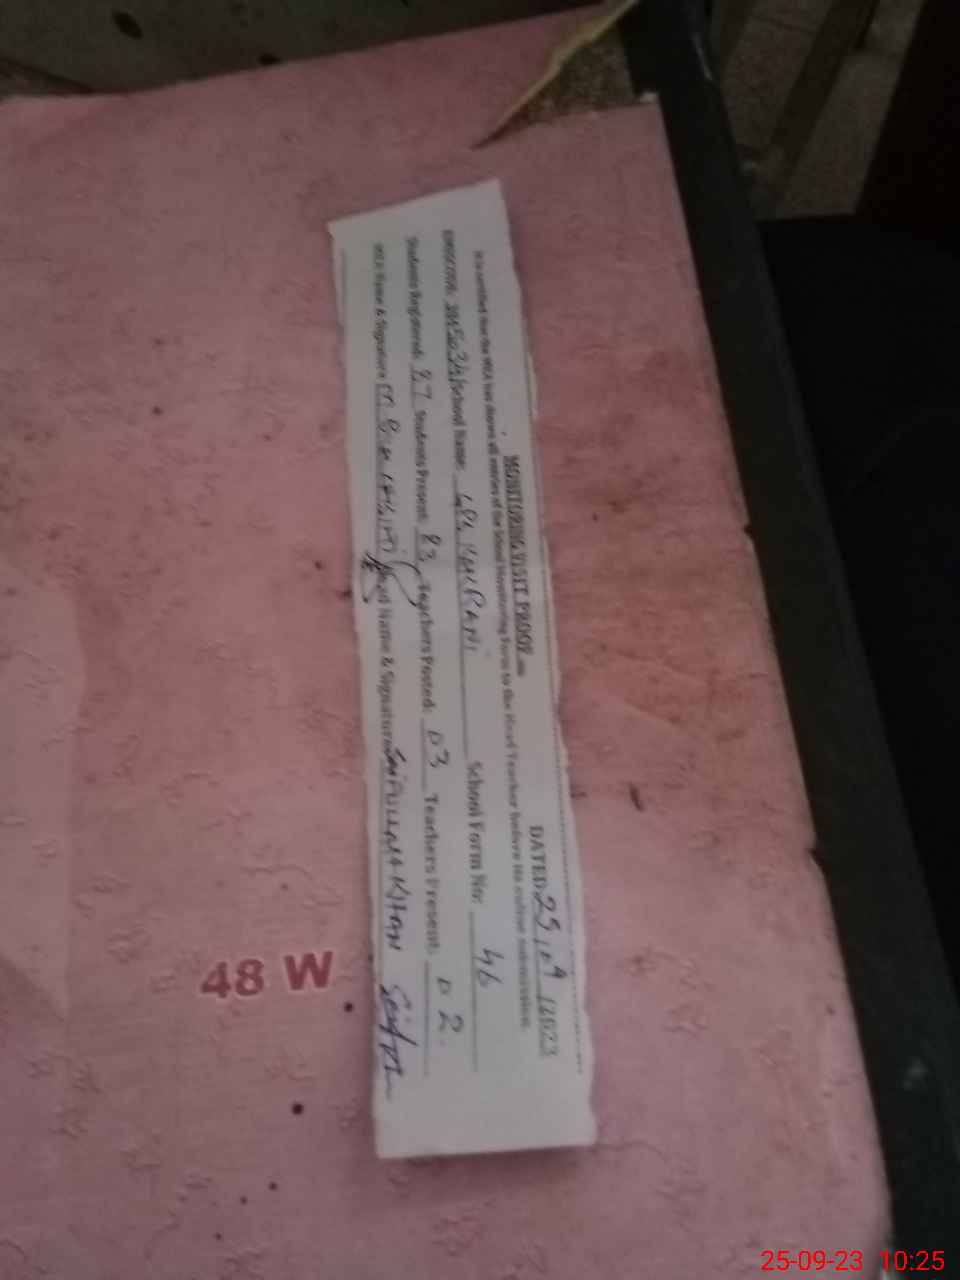 MONITORING VISIT PROOF
DATED 25/09/2023
It is certified that the MEA has shown all entries of the School Monitoring Form to the Head Teacher before his online submission.
School Name: KAURANI School Form No: 46
Students Registered: 87 Students Present: 83 Teachers Posted: 03 Teachers Present: 02
Name & Signature Head Name & Signature SAIFULLAH KHAN
48 W
25-09-23 10:25